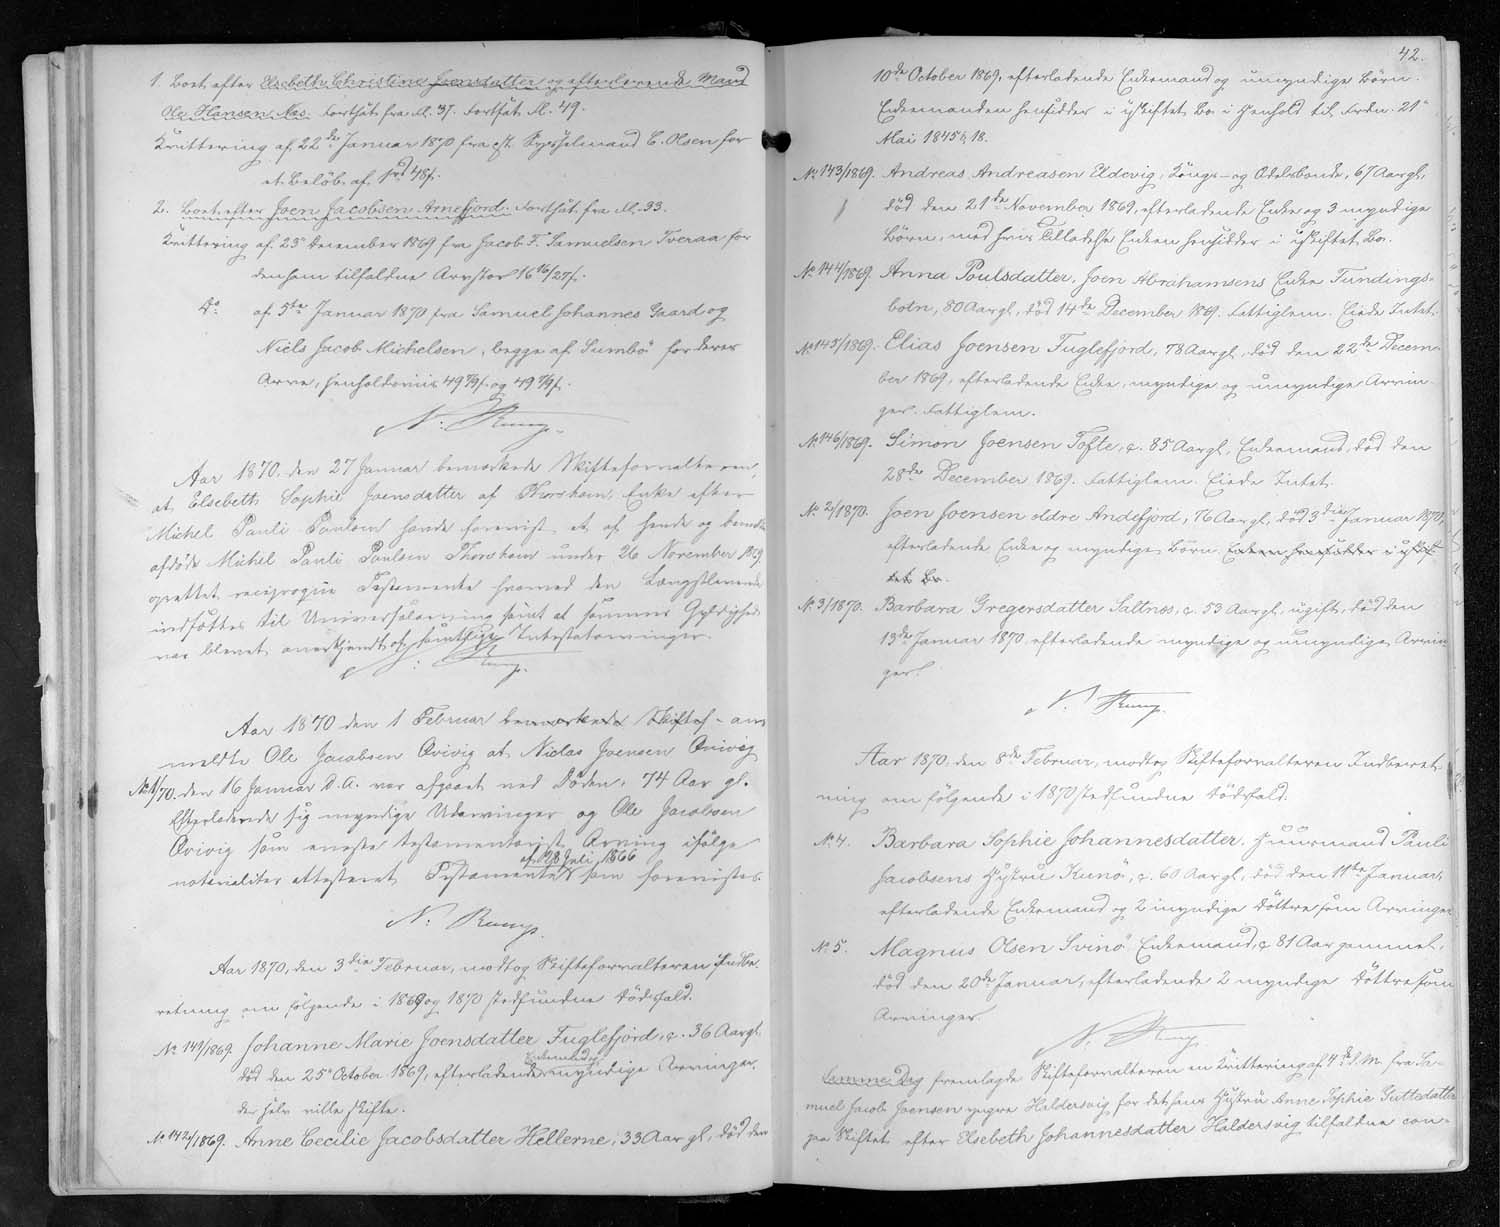 1. Boet efter Elsebeth Christine Joensdatter og efterlevende Mand
Ole Hansen Næs. Fortsat fra Fl. 37. Fortsat Fl. 49.
Kvittering af 22de Januar 1870 fra cst. Sysselmand C. Olsen for
et Beløb af
2. Boet efter Joen Jacobsen Arnefjord. Fortsat fra Fl. 33.
Kvittering af 23de December 1869 fra Jacob F. Samuelsen Tveraa for
den ham tilfaldne Arvepar 16 16/27 f.
Do af 5te Januar 1870 fra Samuel Johannes Gaard og
Niels Jacob Michelsen, begge af Sumbø for deres
Arve, henholdsviis 49 f. og 49 f.
N. Rump.
Aar 1870 den 27 Januar bemærkede Skifteforvalteren,
at Elsebeth Sophie Joensdatter af Thorshavn, Enke efter
Michel Pauli Poulsen havde foreviist et af hende og bemeldte
afdøde Michel Pauli Poulsen Thorshavn under 26 November 1869
oprettet reciproque Testamente hvorved den Længstlevende
indsættes til Universalarving samt at sammes Gyldighed
var blevet anerkjendt af samtlige Intestatarvinger.
N. Rump.
Aar 1870 den 1 Februar bemærkede Skiftef- an-
meldte Ole Jacobsen Qvivig at Niclas Joensen Qvivig
No 1/70. den 16 Januar d. A. var afgaaet ved Døden, 74 Aar gl.
Efterladende sig myndige Udarvinger og Ole Jacobsen
Qvivig som eneste testamentarisk Arving ifølge
af 28 Juli 1866
notarialiter attesteret Testamente som forevistes.
N. Rump.
Aar 1870, den 3die Februar, modtog Skifteforvalteren Indbe-
retning om følgende i 1869 og 1870 stedfundne Dødsfald.
No 141/1869. Johanne Marie Joensdatter Fuglefjord, c. 36 Aar gl.
Enkemand og
død den 25de October 1869, efterladende myndige Arvinger,
der selv ville skifte.
No 142/1869. Anne Cecilie Jacobsdatter Hellerne, 33 Aar gl., død den
42.
10de October 1869, efterladende Enkemand og umyndige Børn.
Enkemanden hensidder i uskiftet Bo i Henhold til Frdn. 21de
Mai 1845 § 18.
No 143/1869. Andreas Andreasen Eldevig, Kongs- og Odelsbonde, 67 Aar gl.,
død den 21de November 1869, efterladende Enke og 3 myndige
Børn, med hvis Tilladelse Enken hensidder i uskiftet Bo.
No 144/1869. Anna Poulsdatter, Joen Abrahamsens Enke Fundings-
botn, 80 Aar gl., død 14de December 1869. Fattiglem. Eiede Intet.
No 145/1869. Elias Joensen Fuglefjord, 78 Aar gl., død den 22de Decem-
ber 1869, efterladende Enke, myndige og umyndige Arvin-
ger. Fattiglem.
No 146/1869. Simon Joensen Tofte, c. 85 Aar gl., Enkemand, død den
28de December 1869. Fattiglem. Eiede Intet.
No 2/1870. Joen Joensen ældre Andefjord, 76 Aar gl., død 3die Januar 1870,
efterladende Enke og myndige Børn. Enken hensidder i uskif-
tet Bo.
No 3/1870. Barbara Gregersdatter Saltnæs, c. 53 Aar gl., ugift, død den
13de Januar 1870, efterladende myndige og umyndige Arvin-
ger.
N. Rump.
Aar 1870, den 8de Februar, modtog Skifteforvalteren Indberet-
ning om følgende i 1870 stedfundne Dødsfald.
No 4. Barbara Sophie Johannesdatter, Huusmand Pauli
Jacobsens Hustru Kunø, c. 60 Aar gl., død den 11te Januar,
efterladende Enkemand og 2 myndige Døttre som Arvinger
No 5. Magnus Olsen Svinø Enkemand, c. 81 Aar gammel,
død den 20de Januar, efterladende 2 myndige Døttre som
Arvinger.
N. Rump.
Samme Dag fremlagde Skifteforvalteren en Kvittering af 4de d. M. fra Sa-
muel Jacob Joensen yngre Haldersvig for det hans Hustru Anne Sophie Guttesdatter
paa Skiftet efter Elsebeth Johannesdatter Haldersvig tilfaldne con-